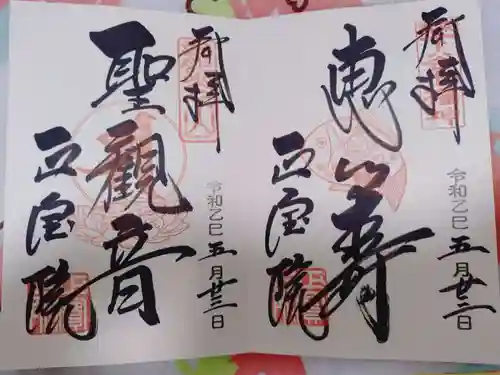 奉拝
恵比寿
正宝院
令和乙巳五月廿三日
奉拝
聖觀音
正宝院
令和乙巳五月廿三日